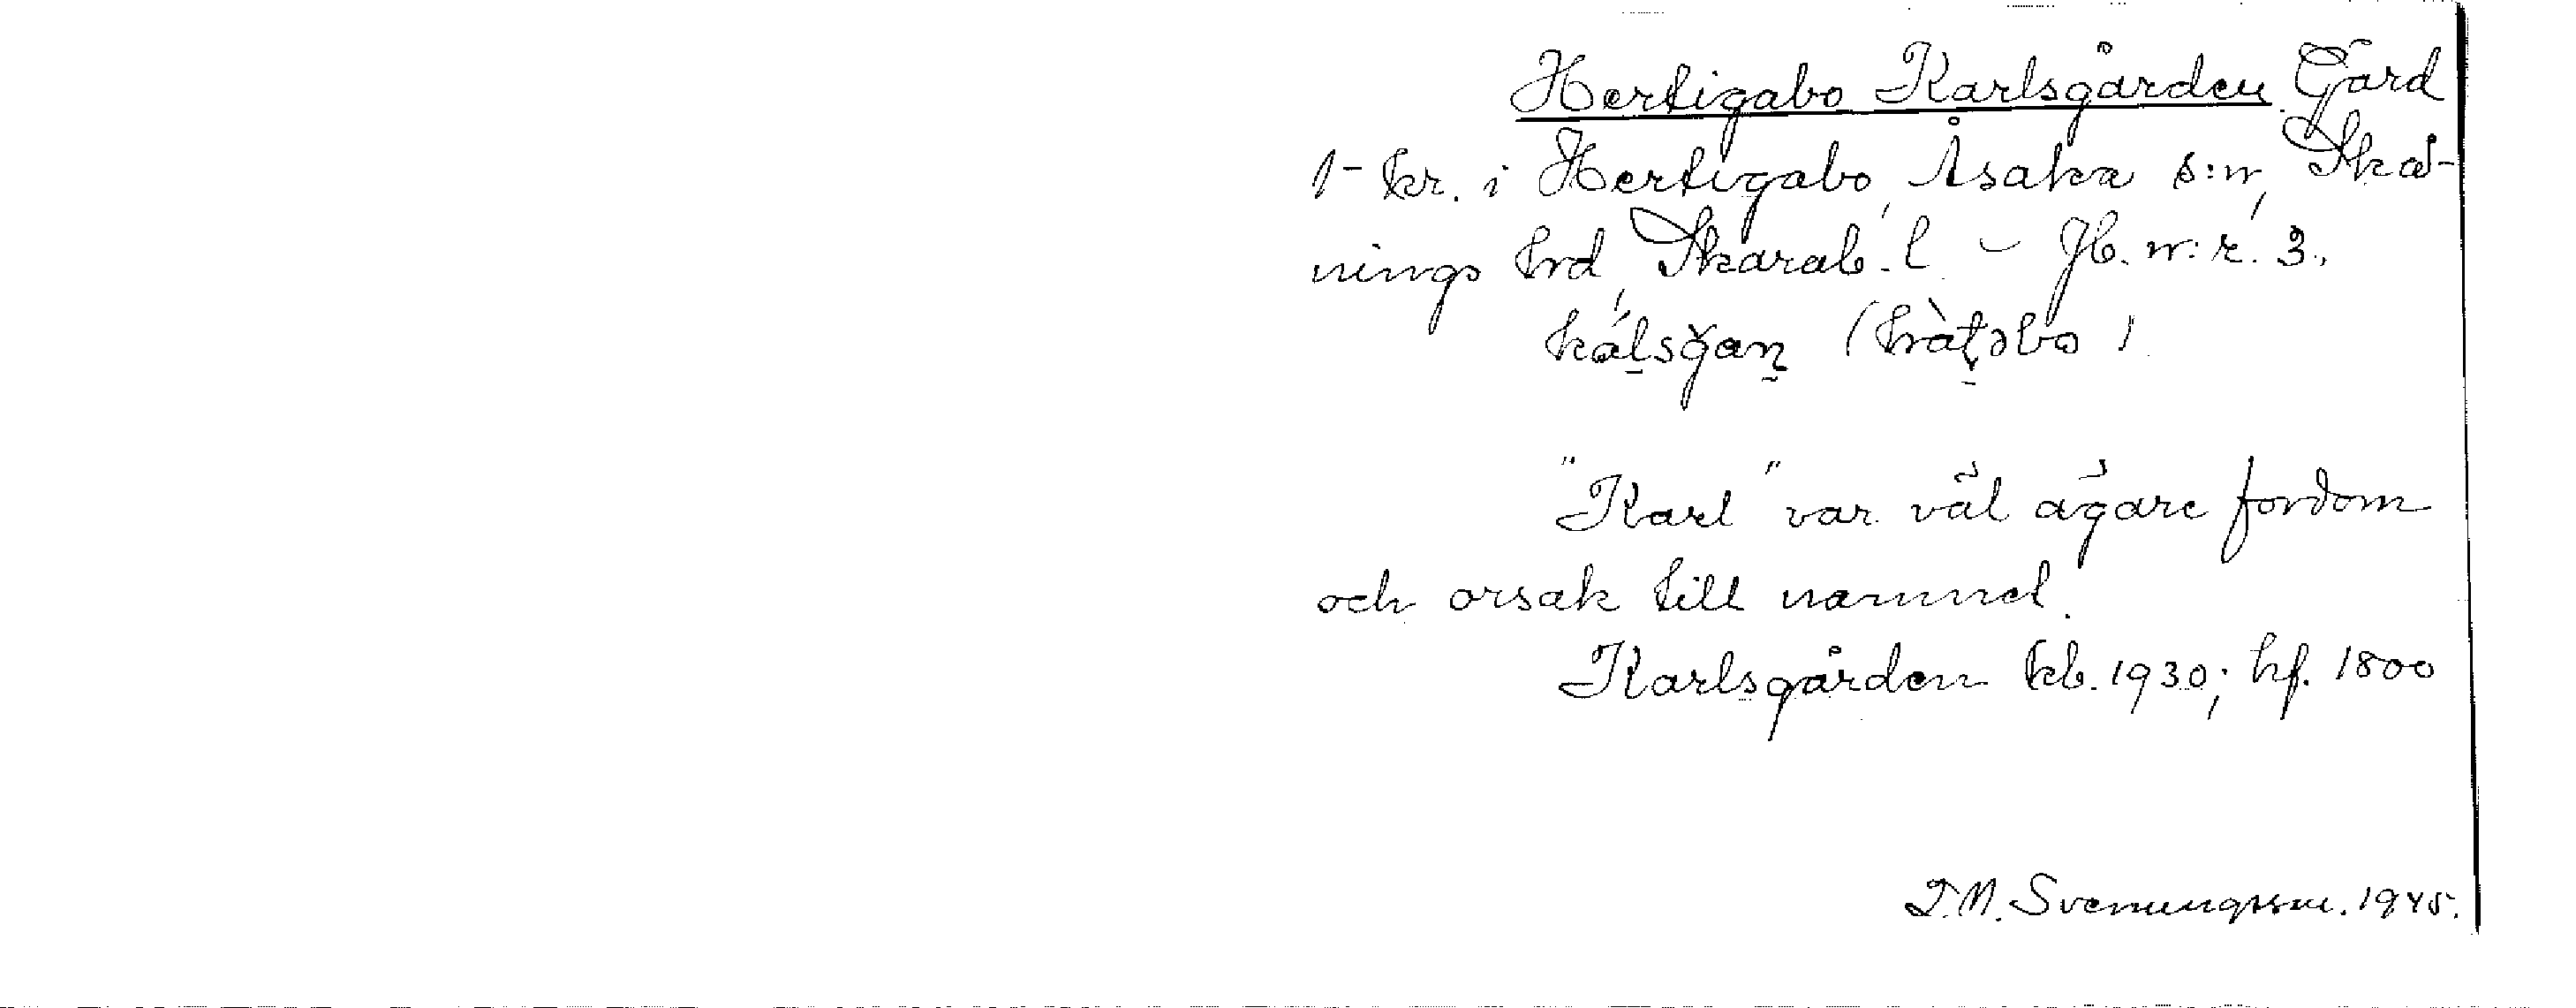 Hertigabo Karlsgården Gård
1 kr. i Hertigabo, Åsaka s:n, Skå-
nings hrd, Skarab. l. – Jb. n:r. 3.
"Karl" var väl ägare fordom
och orsak till namnet.
Karlsgården kb. 1930; hf. 1800
Svenungsson. 1945.